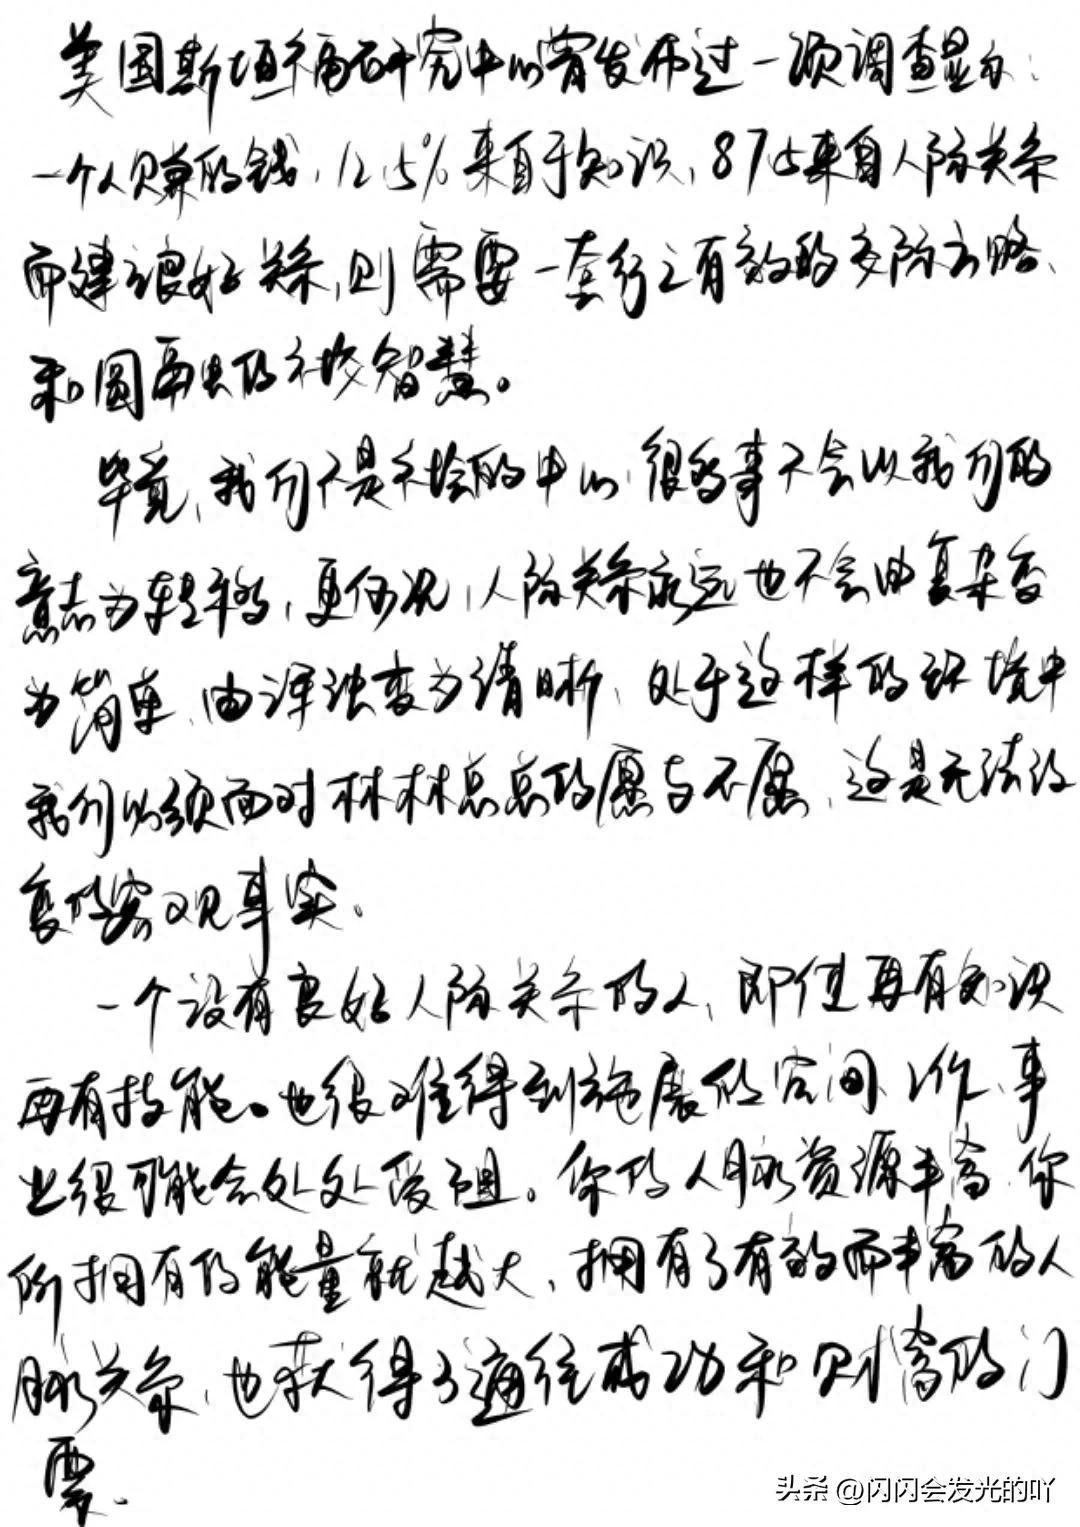 美国斯坦福研究中心曾发布过一项调查显示:
一个人赚的钱,12.5%来自于知识,87.5来自人际关系
而建立良好关系,则需要一套行之有效的交际方略、
和圆融的社交智慧。
毕竟,我们不是社会的中心,很多事不会以我们的
意志为转移,更何况,人际关系永远也不会由复杂变
为简单,由浑浊变为清晰,处于这样的环境中
我们必须面对林林总总的愿与不愿,这是无法改
变的客观事实。
一个没有良好人际关系的人,即使再有知识
再有技能。也很难得到施展的空间,工作、事
业很可能会处处受阻。你的人脉资源丰富,你
所拥有的能量就越大,拥有了有效而丰富的人
脉关系,也获得了通往成功和财富的门
票.
头条 @闪闪会发光的吖